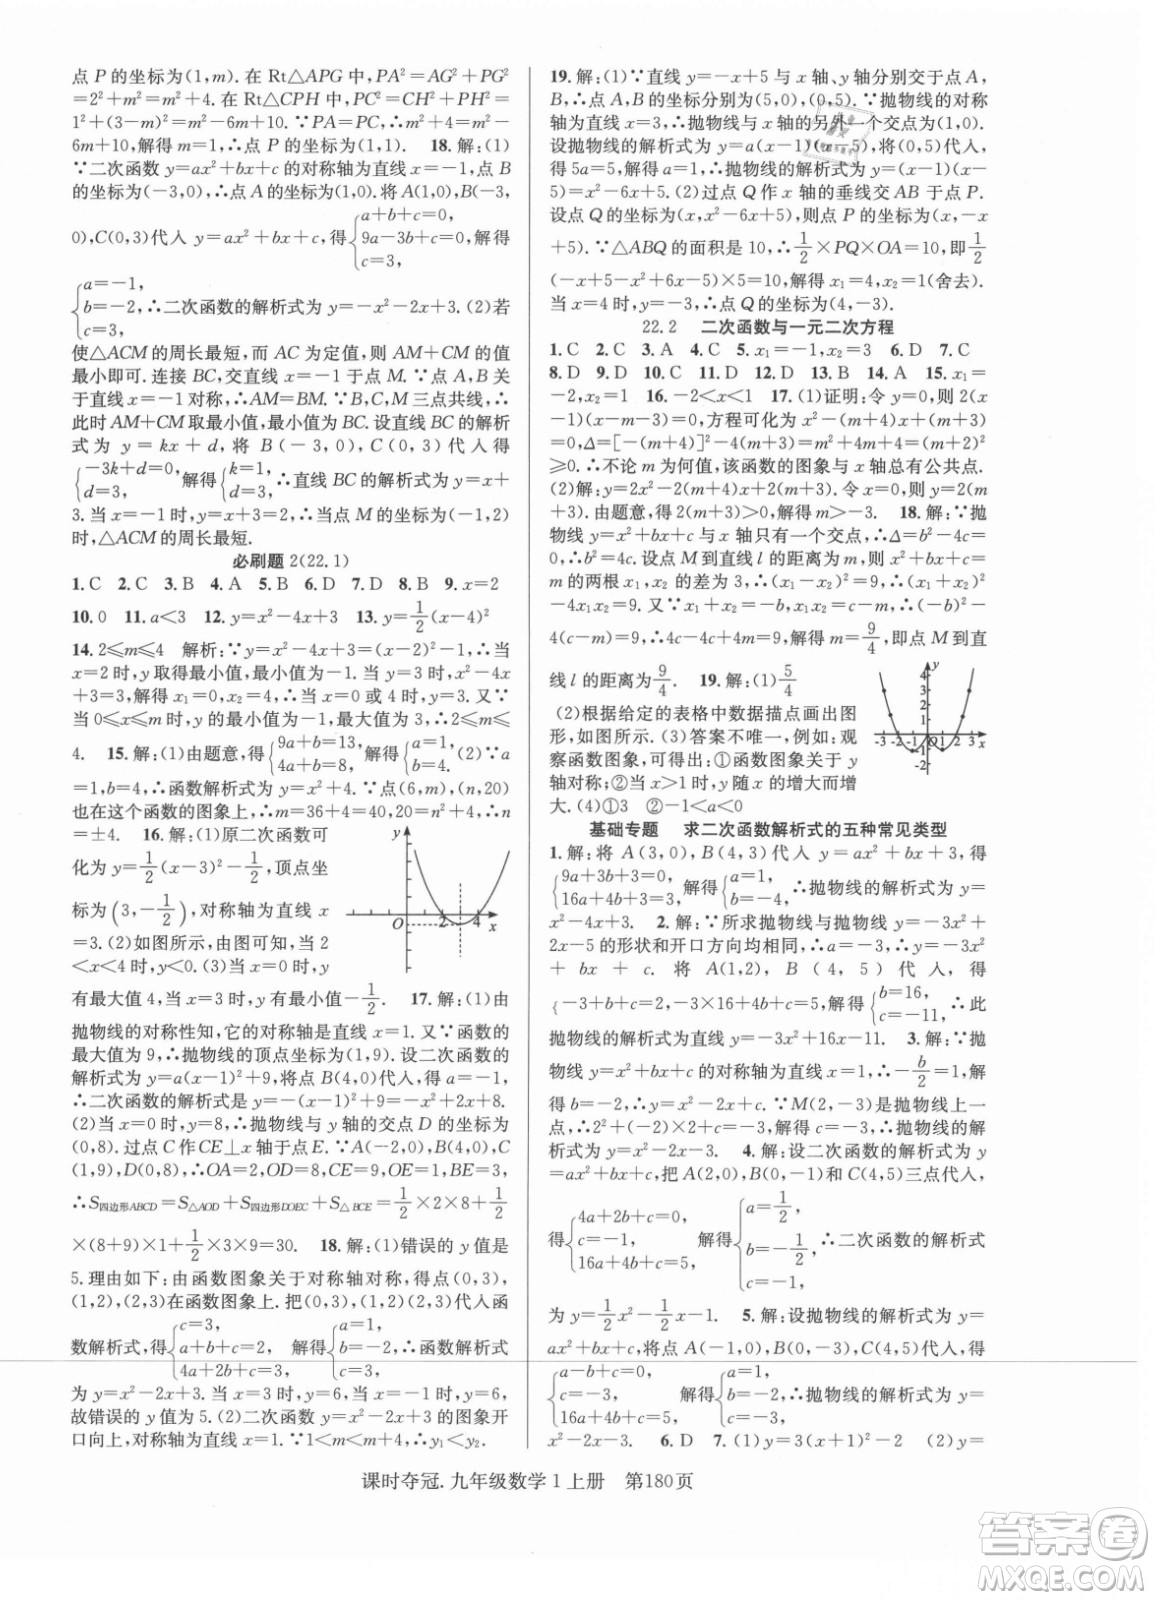 点 P 的坐标为(1,m). 在 Rt△APG 中,PA²=AG²+PG²
=2²+m²=m²+4. 在 Rt△CPH 中,PC²=CH²+PH²=
1²+(3-m)²=m²-6m+10. ∵PA=PC,∴m²+4=m²-
6m+10, 解得 m=1,∴点 P 的坐标为(1,1). 18. 解:(1)
∵二次函数 y=ax²+bx+c 的对称轴为直线x=-1,点 B
的坐标为(-3,0),∴点 A 的坐标为(1,0). 将 A(1,0),B(-3,
0),C(0,3)代入 y=ax²+bx+c,得{a+b+c=0, 9a-3b+c=0, c=3, 解得
{a=-1, b=-2, c=3, ∴二次函数的解析式为 y=-x²-2x+3. (2)若
使△ACM 的周长最短,而 AC 为定值,则 AM+CM 的值
最小即可. 连接 BC,交直线 x=-1 于点 M. ∵点 A,B 关
于直线 x=-1 对称,∴AM=BM. ∵B,C,M 三点共线,∴
此时 AM+CM 取最小值,最小值为 BC. 设直线 BC 的解析
式为 y=kx+d, 将 B(-3,0),C(0,3)代入得
{-3k+d=0, d=3, 解得{k=1, d=3, ∴直线 BC 的解析式为 y=x+
3. 当 x=-1 时,y=-1+3=2,∴当点 M 的坐标为(-1,2)
时,△ACM 的周长最短.
必刷题 2(22.1)
1. C 2. C 3. B 4. A 5. B 6. D 7. B 8. D 9. x=2
10. 0 11. a<3 12. y=x²-4x+3 13. y=1/2(x-4)²
14. 2≤m≤4 解析:∵y=x²-4x+3=(x-2)²-1,∴当 x
=2 时,y 取得最小值,最小值为-1. 当 y=3 时,有 x²-4x
+3=3,解得 x₁=0,x₂=4,∴当 x=0 或 4 时,y=3. 又∵
当 0≤x≤m 时,y 的最小值为-1,最大值为 3,∴2≤m≤
4. 15. 解:(1)由题意,得{9a+b=13, 4a+b=8, 解得{a=1, b=4. (2)∵a
=1,b=4,∴函数解析式为 y=x²+4. ∵点(6,m),(n,20)
也在这个函数的图象上,∴m=36+4=40,20=n²+4,∴n
=±4. 16. 解:(1)原二次函数可
化为 y=1/2(x-3)²-1/2,顶点坐
标为(3,-1/2),对称轴为直线 x
=3. (2)如图所示,由图可知,当 2
<x<4 时,y<0. (3)当x=0时,y
有最大值 4,当 x=3 时,y 有最小值-1/2. 17. 解:(1)由
抛物线的对称性知,它的对称轴是直线 x=1. 又∵函数的
最大值为 9,∴抛物线的顶点坐标为(1,9). 设二次函数的
解析式为 y=a(x-1)²+9,将点 B(4,0)代入,得 a=-1,
∴二次函数的解析式是 y=-(x-1)²+9=-x²+2x+8.
(2)当 x=0 时,y=8,即抛物线与 y 轴的交点 D 的坐标为
(0,8). 过点 C 作 CE⊥x 轴于点 E. ∵A(-2,0),B(4,0),C
(1,9),D(0,8),∴OA=2,OD=8,CE=9,OE=1,BE=3,
∴S四边形ABCD=S△AOD+S四边形DOEC+S△BCE=1/2×2×8+1/2
×(8+9)×1+1/2×3×9=30. 18. 解:(1)错误的 y 值是
5. 理由如下:由函数图象关于对称轴对称,得点(0,3),
(1,2),(2,3)在函数图象上. 把(0,3),(1,2),(2,3)代入函
数解析式,得{c=3, a+b+c=2, 4a+2b+c=3, 解得{a=1, b=-2, c=3, ∴函数解析式
为 y=x²-2x+3. 当 x=3 时,y=6,当 x=-1 时,y=6,
故错误的 y 值为 5. (2)二次函数 y=x²-2x+3 的图象开
口向上,对称轴为直线 x=1. ∵1<m<m+4,∴y₁<y₂.
19. 解:(1)∵直线 y=-x+5 与 x 轴、y 轴分别交于点 A,
B,∴点 A,B 的坐标分别为(5,0),(0,5). ∵抛物线的对称
轴为直线 x=3,∴抛物线与 x 轴的另外一个交点为(1,0).
设抛物线的解析式为 y=a(x-1)(x-5),将(0,5)代入,
得 5a=5,解得 a=1,∴抛物线的解析式为 y=(x-1)(x-
5)=x²-6x+5. (2)过点 Q 作 x 轴的垂线交 AB 于点 P.
设点 Q 的坐标为(x,x²-6x+5),则点 P 的坐标为(x,-x
+5). ∵△ABQ 的面积是 10,∴1/2×PQ×OA=10,即1/2
(-x+5-x²+6x-5)×5=10,解得 x₁=4,x₂=1(舍去).
当 x=4 时,y=-3,∴点 Q 的坐标为(4,-3).
22.2 二次函数与一元二次方程
1. C 2. C 3. A 4. C 5. x₁=-1,x₂=3 6. D 7. C
8. D 9. C 10. C 11. D 12. D 13. B 14. A 15. x₁=
-2,x₂=1 16. -2<x<1 17. (1)证明:令 y=0,则 2(x
-1)(x-m-3)=0,方程可化为 x²-(m+4)x+(m+3)
=0,Δ=[-(m+4)]²-4(m+3)=m²+4m+4=(m+2)²
≥0. ∴不论 m 为何值,该函数的图象与 x 轴总有公共点.
(2)解:y=2x²-2(m+4)x+2(m+3). 令 x=0,y=2(m
+3). 由题意,得 2(m+3)>0,解得 m>-3. 18. 解:∵抛
物线 y=x²-bx+c 与 x 轴只有一个交点,∴Δ=b²-4c=
0,∴b²=4c. 设点 M 到直线 l 的距离为 m,则 x²-bx+c=
m 的两根 x₁,x₂ 的差为 3,∴(x₁-x₂)²=9,∴(x₁+x₂)²
-4x₁x₂=9. 又∵x₁+x₂=b,x₁x₂=c-m,∴(-b)²-
4(c-m)=9,∴4c-4c+4m=9,解得 m=9/4,即点 M 到直
线 l 的距离为9/4. 19. 解:(1)5/4
(2)根据给定的表格中数据描点画出图
形,如图所示. (3)答案不唯一,例如:观
察函数图象,可得出:①函数图象关于 y
轴对称;②当 x>1 时,y 随 x 的增大而增
大. (4)①3 ②-1<a<0
基础专题 求二次函数解析式的五种常见类型
1. 解:将 A(3,0),B(4,3)代入 y=ax²+bx+3,得
{9a+3b+3=0, 16a+4b+3=3, 解得{a=1, b=-4, ∴抛物线的解析式为 y=x²
-4x+3. 2. 解:∵所求抛物线与抛物线 y=-3x²+
2x-5 的形状和开口方向均相同,∴a=-3,∴y=-3x²
+bx+c. 将 A(1,2),B(4,5)代入,得
{-3+b+c=2, -3×16+4b+c=5, 解得{b=16, c=-11, ∴此
抛物线的解析式为 y=-3x²+16x-11. 3. 解:∵抛
物线 y=x²+bx-3 的对称轴为直线 x=1,∴-b/2=1,解得
b=-2,∴y=x²-2x+c. ∵M(2,-3)是抛物线上一
点,∴2²-2×2+c=-3,解得 c=-3,∴此抛物线的解
析式为 y=x²-2x-3. 4. 解:设二次函数的解析式为 y
=ax²+bx+c,把 A(2,0),B(0,-1)和 C(4,5)三点代入,
得{4a+2b+c=0, c=-1, 16a+4b+c=5, 解得{a=1/2, b=-1/2, c=-1, ∴二次函数的解析式
为 y=1/2x²-1/2x-1. 5. 解:设抛物线的解析式为 y=
ax²+bx+c,将点 A(-1,0),B(0,-3),C(4,5)代入,得
{a-b+c=0, c=-3, 16a+4b+c=5, 解得{a=1, b=-2, c=-3, ∴抛物线的解析式为 y=
x²-2x-3. 6. D 7. (1)y=3(x+1)²-2 (2)y=
课时夺冠. 九年级数学 1 上册 第180页
答案卷
MXQE.COM